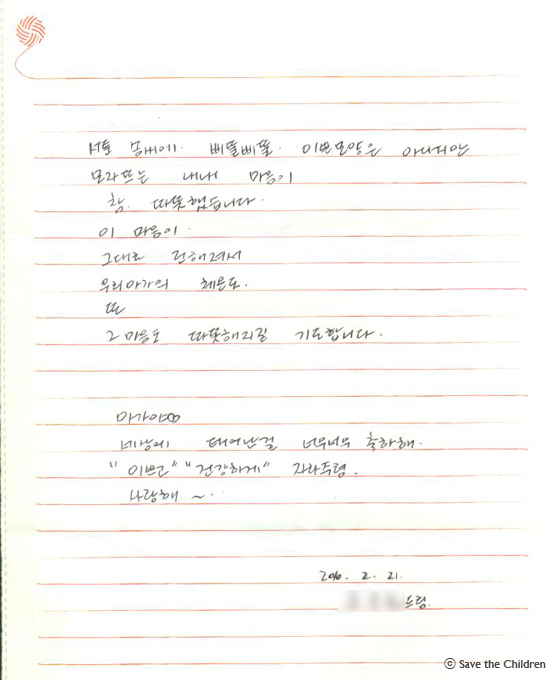 서툰 솜씨에. 삐뚤삐뚤. 이쁜모양은 아니지만
모자뜨는 내내 마음이
참. 따뜻했습니다.
이 마음이.
그대로 전해져서
우리아가의 체온도.
또
그 마음도 따뜻해지길 기도합니다.
아가야
세상에 태어난걸 너무너무 축하해.
"이쁘고" "건강하게" 자라주렴.
사랑해 ~..
2016. 2. 21.
드림.
ⓒ Save the Children